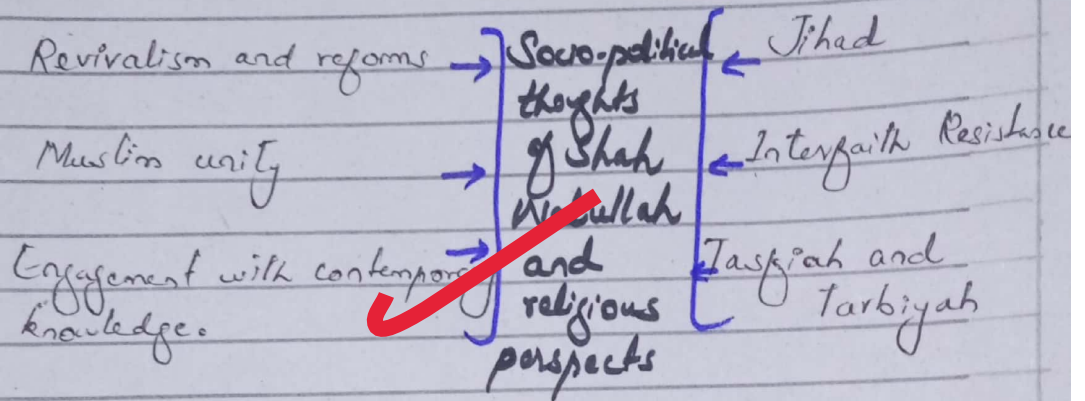 Revivalism and refoms
Muslim unity
Engagement with contemporary
knowledge.
Socio-political
thoughts
of Shah
Waliullah
and
religious
perspects
Jihad
Interfaith Resistance
Taskiah and
Tarbiyah